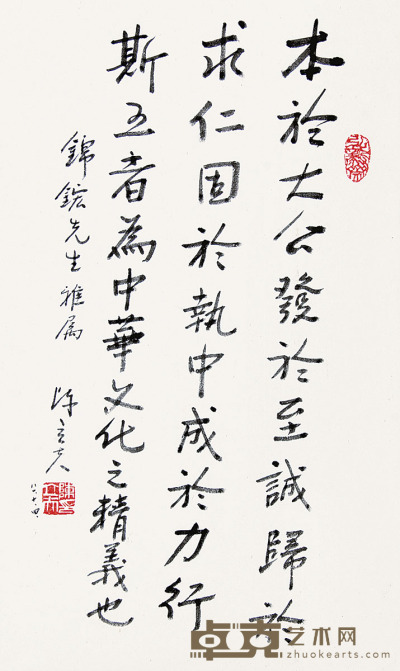 本於大公發於至誠歸於
求仁固於執中成於力行
斯五者為中華文化之精義也
錦鋐先生雅属
陳立夫
卓克艺术网
www.zhuokearts.com